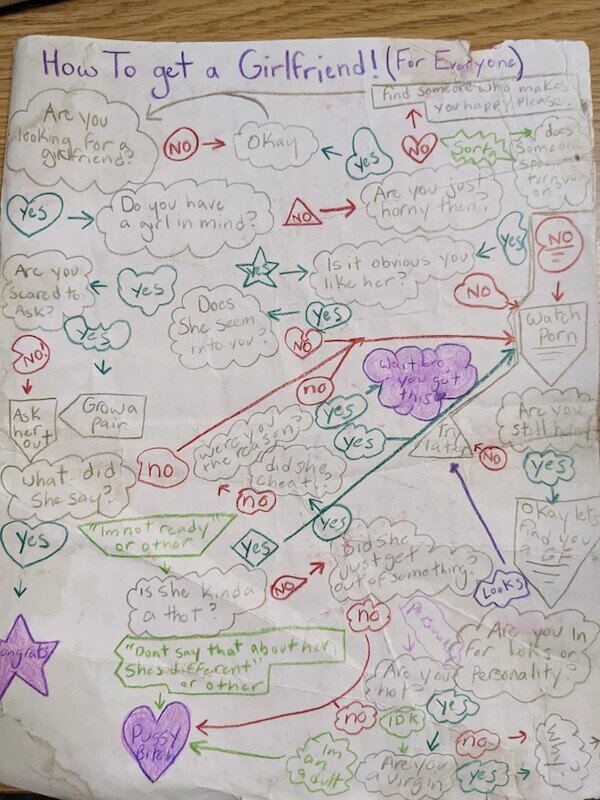 How To get a Girlfriend! (For Everyone)
find someone who makes
you happy please.
Are you
looking for a
girlfriend?
NO
Okay
yes
NO
Sorta
does
someone
turn you
on?
yes
Do you have
a girl in mind?
NO
Are you just
horny then?
yes
NO
Are you
scared to
Ask?
yes
yes
Is it obvious you
like her?
NO
Does
She seem
into you?
yes
NO
Watch
Porn
yes
NO!
no
Wait bro
you got
this
Ask
her
out
Grow a
pair
yes
were you
the reason?
yes
Try
later
Are you
still horny
NO
yes
What did
She say?
no
did she
cheat?
no
yes
"Im not ready"
or other
yes
yes
Okay lets
find you
a GF
Did she
just get
out of something?
Is she kinda
a thot?
NO
Looks
no
Personality
Are you in
for looks or
Personality?
"Dont say that about her
Shes different"
or other
Congrats
Are you
hot?
yes
no
IDK
Pussy
Bitch
Im
an adult
Are you
a virgin
no
yes